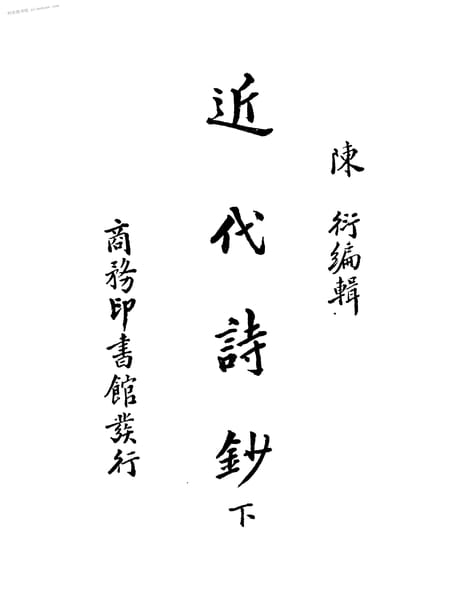 陳衍編輯
近代詩鈔下
商務印書館發行